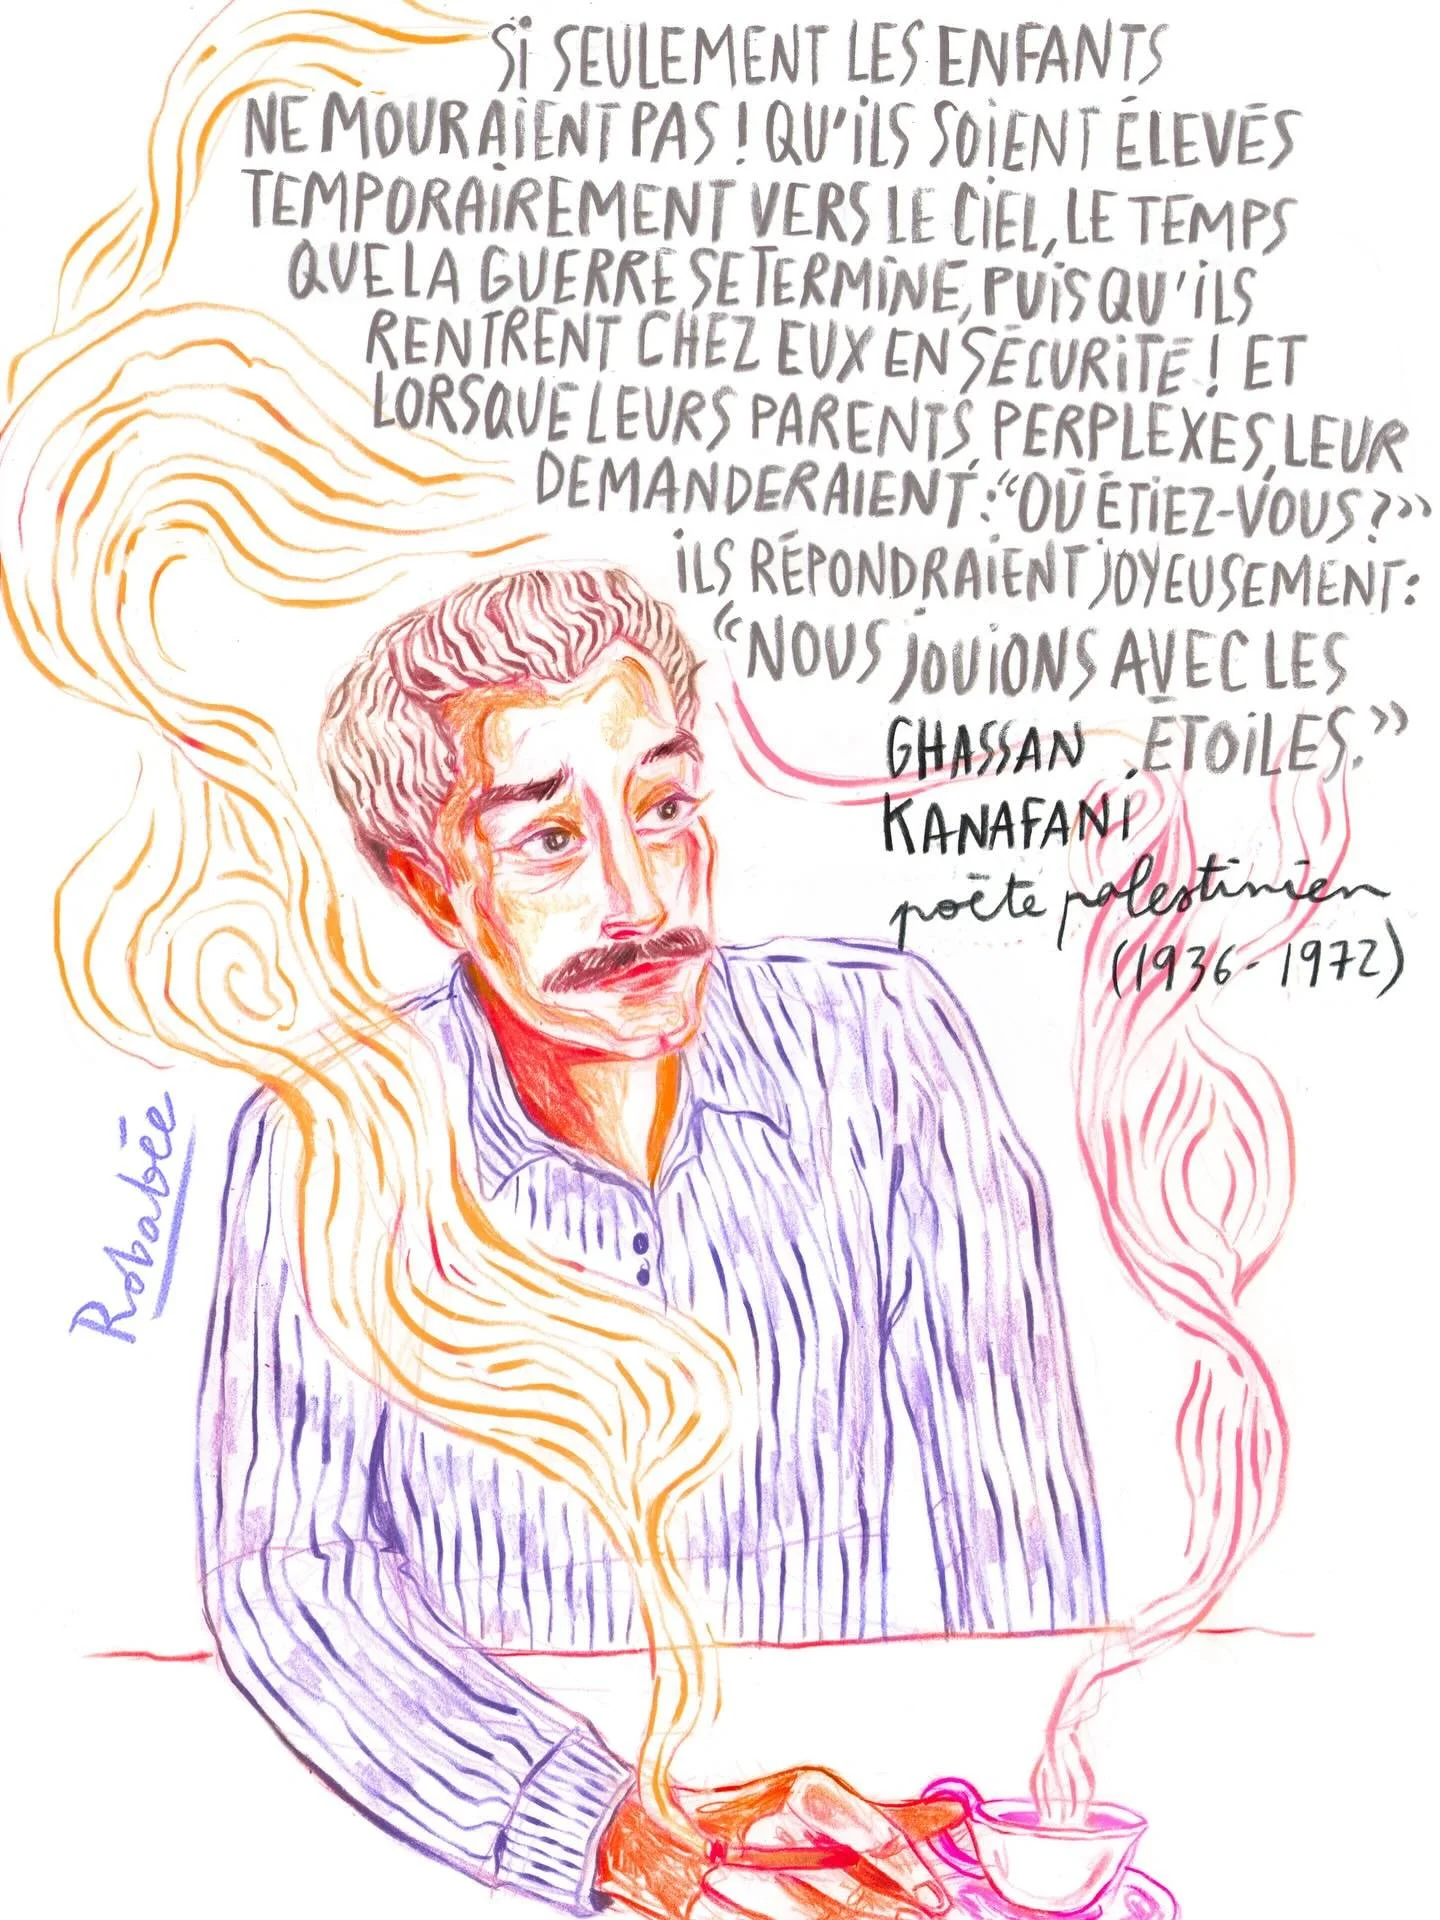 Si SEULEMENT LES ENFANTS
NE MOURAiENT PAS ! QU'iLS SOiENT ÉLEVÉS
TEMPORAiREMENT VERS LE CiEL, LE TEMPS
QUE LA GUERRE SE TERMiNE, PUiS QU'iLS
RENTRENT CHEZ EUX EN SÉCURiTÉ ! ET
LORSQUE LEURS PARENTS, PERPLEXES, LEUR
DEMANDERAIENT : “OÙ ÉTiEZ-VOUS ?”
iLS RÉPONDRAiENT JOYEUSEMENT :
“NOUS JOUiONS AVEC LES
ÉTOiLES.”
GHASSAN
KANAFANi
poète palestinien
(1936-1972)
Robabée